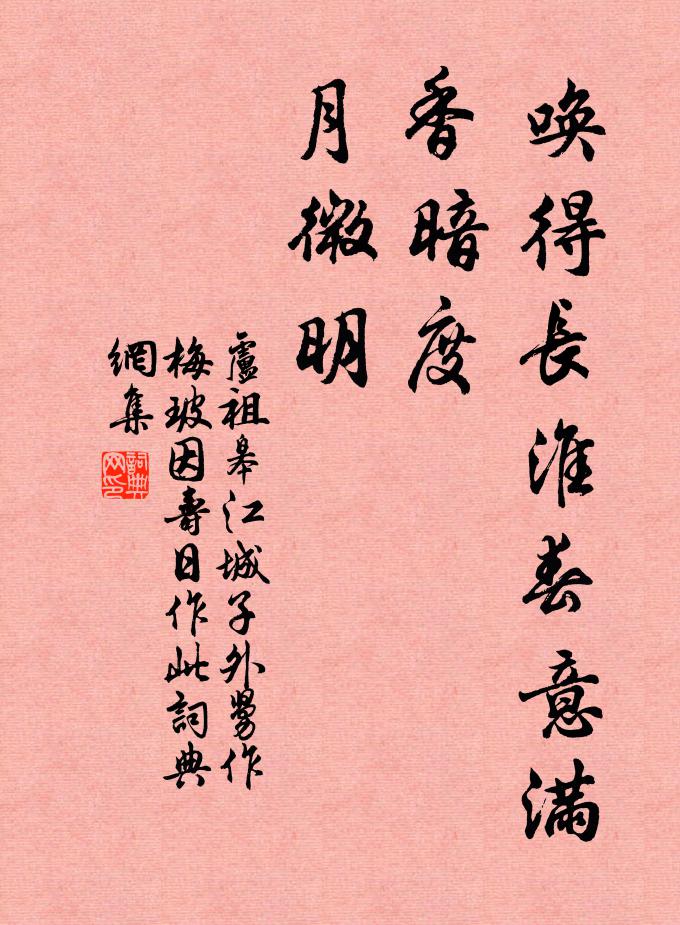 喚得長淮春意滿
香暗度
月微明
盧祖皋江城子外舅作
梅坡因壽日作此詞典
網集
詞典網印